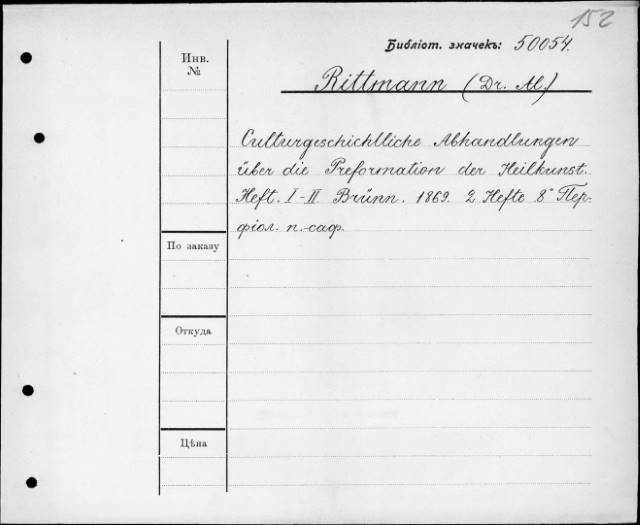 152
Библіот. значекъ: 50054.
Инв.
№
Rittmann (Dr. Al.)
Culturgeschichtliche Abhandlungen
über die Reformation der Heilkunst.
Heft. I-II. Brünn. 1869. 2 Hefte 8° Пер-
фіол. п.-саф.
По заказу
Откуда
Цѣна